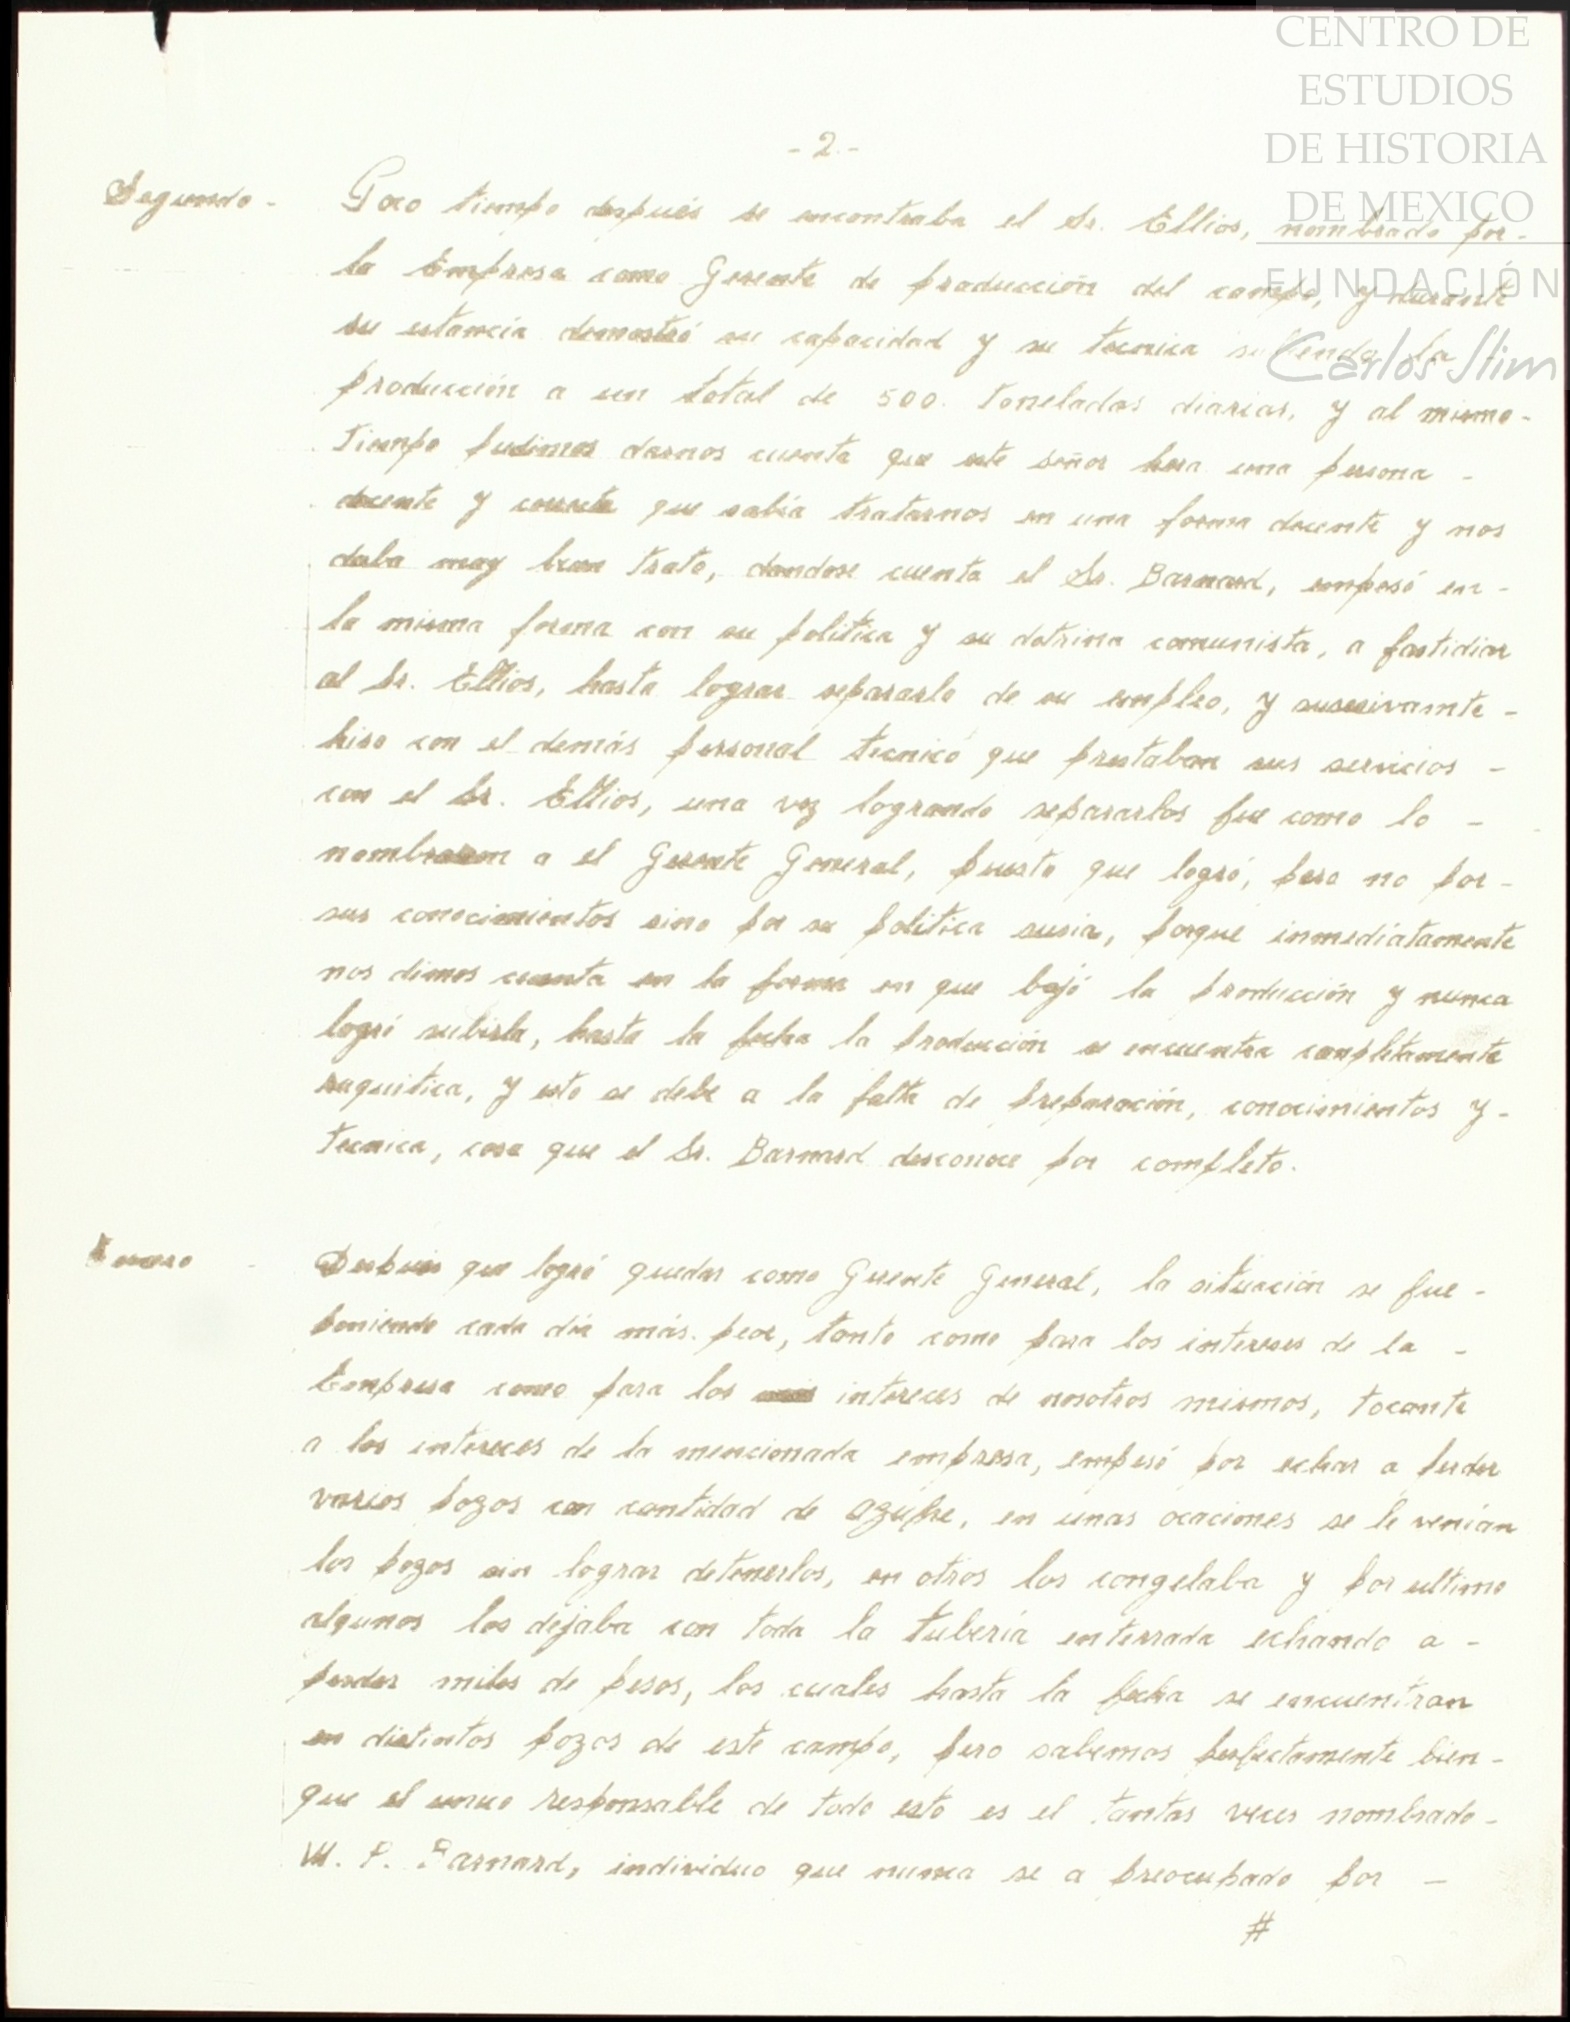 CENTRO DE
ESTUDIOS
DE HISTORIA
DE MEXICO
FUNDACIÓN
Carlos Slim
- 2 -
Segundo - Poco tiempo después se encontraba el Sr. Ellios, nombrado por -
la Empresa como Gerente de producción del campo, y durante
su estancia demostró su capacidad y su tecnica subiendo la
producción a un total de 500. toneladas diarias, y al mismo -
tiempo pudimos darnos cuenta que este señor hera una persona -
decente y correcta que sabía tratarnos en una forma decente y nos
daba muy buen trato, dandose cuenta el Sr. Barnard, empesó en -
la misma forma con su politica y su dotrina comunista, a fastidiar
al Sr. Ellios, hasta lograr separarlo de su empleo, y susesivamte -
hiso con el demás personal tecnico que prestaban sus servicios -
con el Sr. Ellios, una vez logrando separarlos fue como lo -
nombraron a el Gerente General, puesto que logró, pero no por -
sus conocimientos sino por su politica susia, porque inmediatamente
nos dimos cuenta en la forma en que bajó la producción y nunca
logró subirla, hasta la fecha la producción se encuentra completamente
raquitica, y esto se debe a la falta de preparación, conocimientos y -
tecnica, cosa que el Sr. Barnard desconoce por completo.
Tercero - Después que logró quedar como Gerente General, la situación se fue -
poniendo cada día más peor, tanto como para los intereses de la -
Empresa como para los intereces de nosotros mismos, tocante
a los intereces de la mencionada empresa, empesó por echar a perder
varios pozos con cantidad de azúfre, en unas ocaciones se le venían
los pozos sin lograr detenerlos, en otros los congelaba y por ultimo
algunos los dejaba con toda la tubería enterrada echando a -
perder miles de pesos, los cuales hasta la fecha se encuentran
en distintos pozos de este campo, pero sabemos perfectamente bien -
que el unico responsable de todo esto es el tantas veces nombrado -
W. P. Barnard, individuo que nunca se a preocupado por -
#